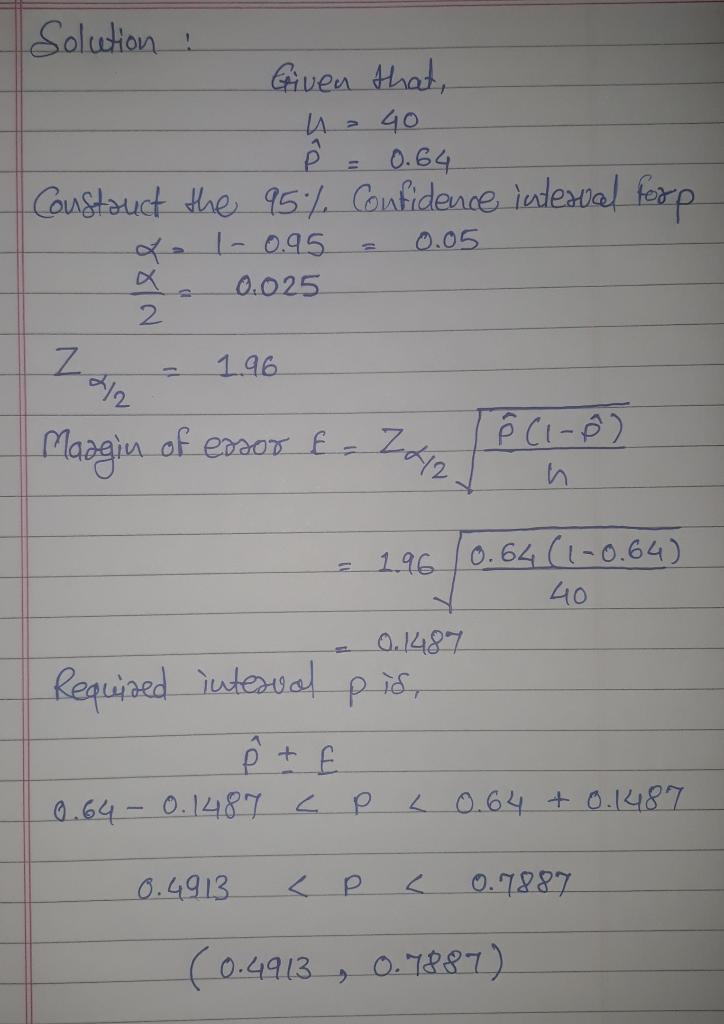 Solution :
Given that,
n = 40
p̂ = 0.64
Construct the 95% Confidence interval for p
α = 1 - 0.95 = 0.05
α/2 = 0.025
Z α/2 = 1.96
Margin of error E = Z α/2 √(p̂(1-p̂)/n)
= 1.96 √(0.64(1-0.64)/40)
= 0.1487
Required interval p is,
p̂ ± E
0.64 - 0.1487 < P < 0.64 + 0.1487
0.4913 < P < 0.7887
(0.4913, 0.7887)